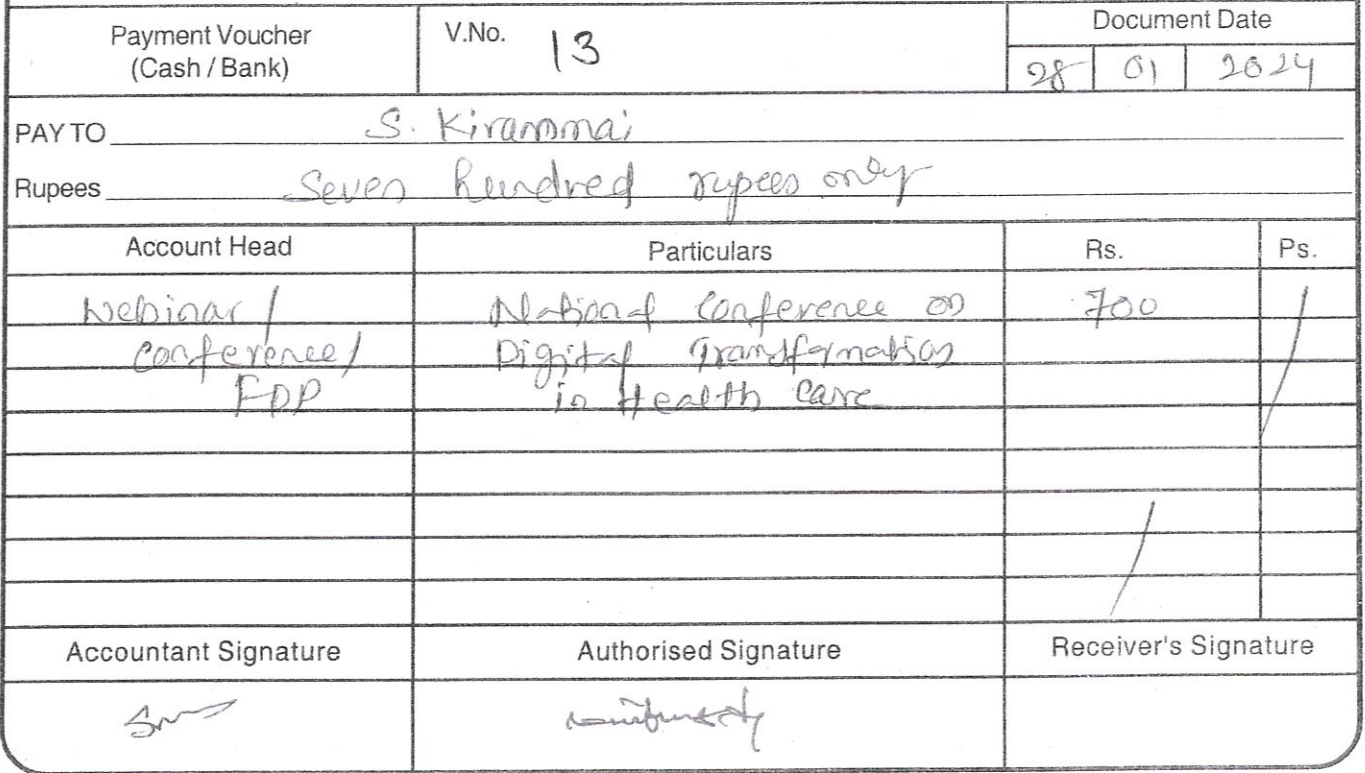 Payment Voucher
(Cash / Bank)
V.No. 13
Document Date
28 01 2024
PAY TO S. Kiranmai
Rupees Seven hundred rupees only
Account Head Particulars Rs. Ps.
Webinar / National Conference on 700
Conference / Digital Transformation
FDP in Health Care
Accountant Signature Authorised Signature Receiver's Signature